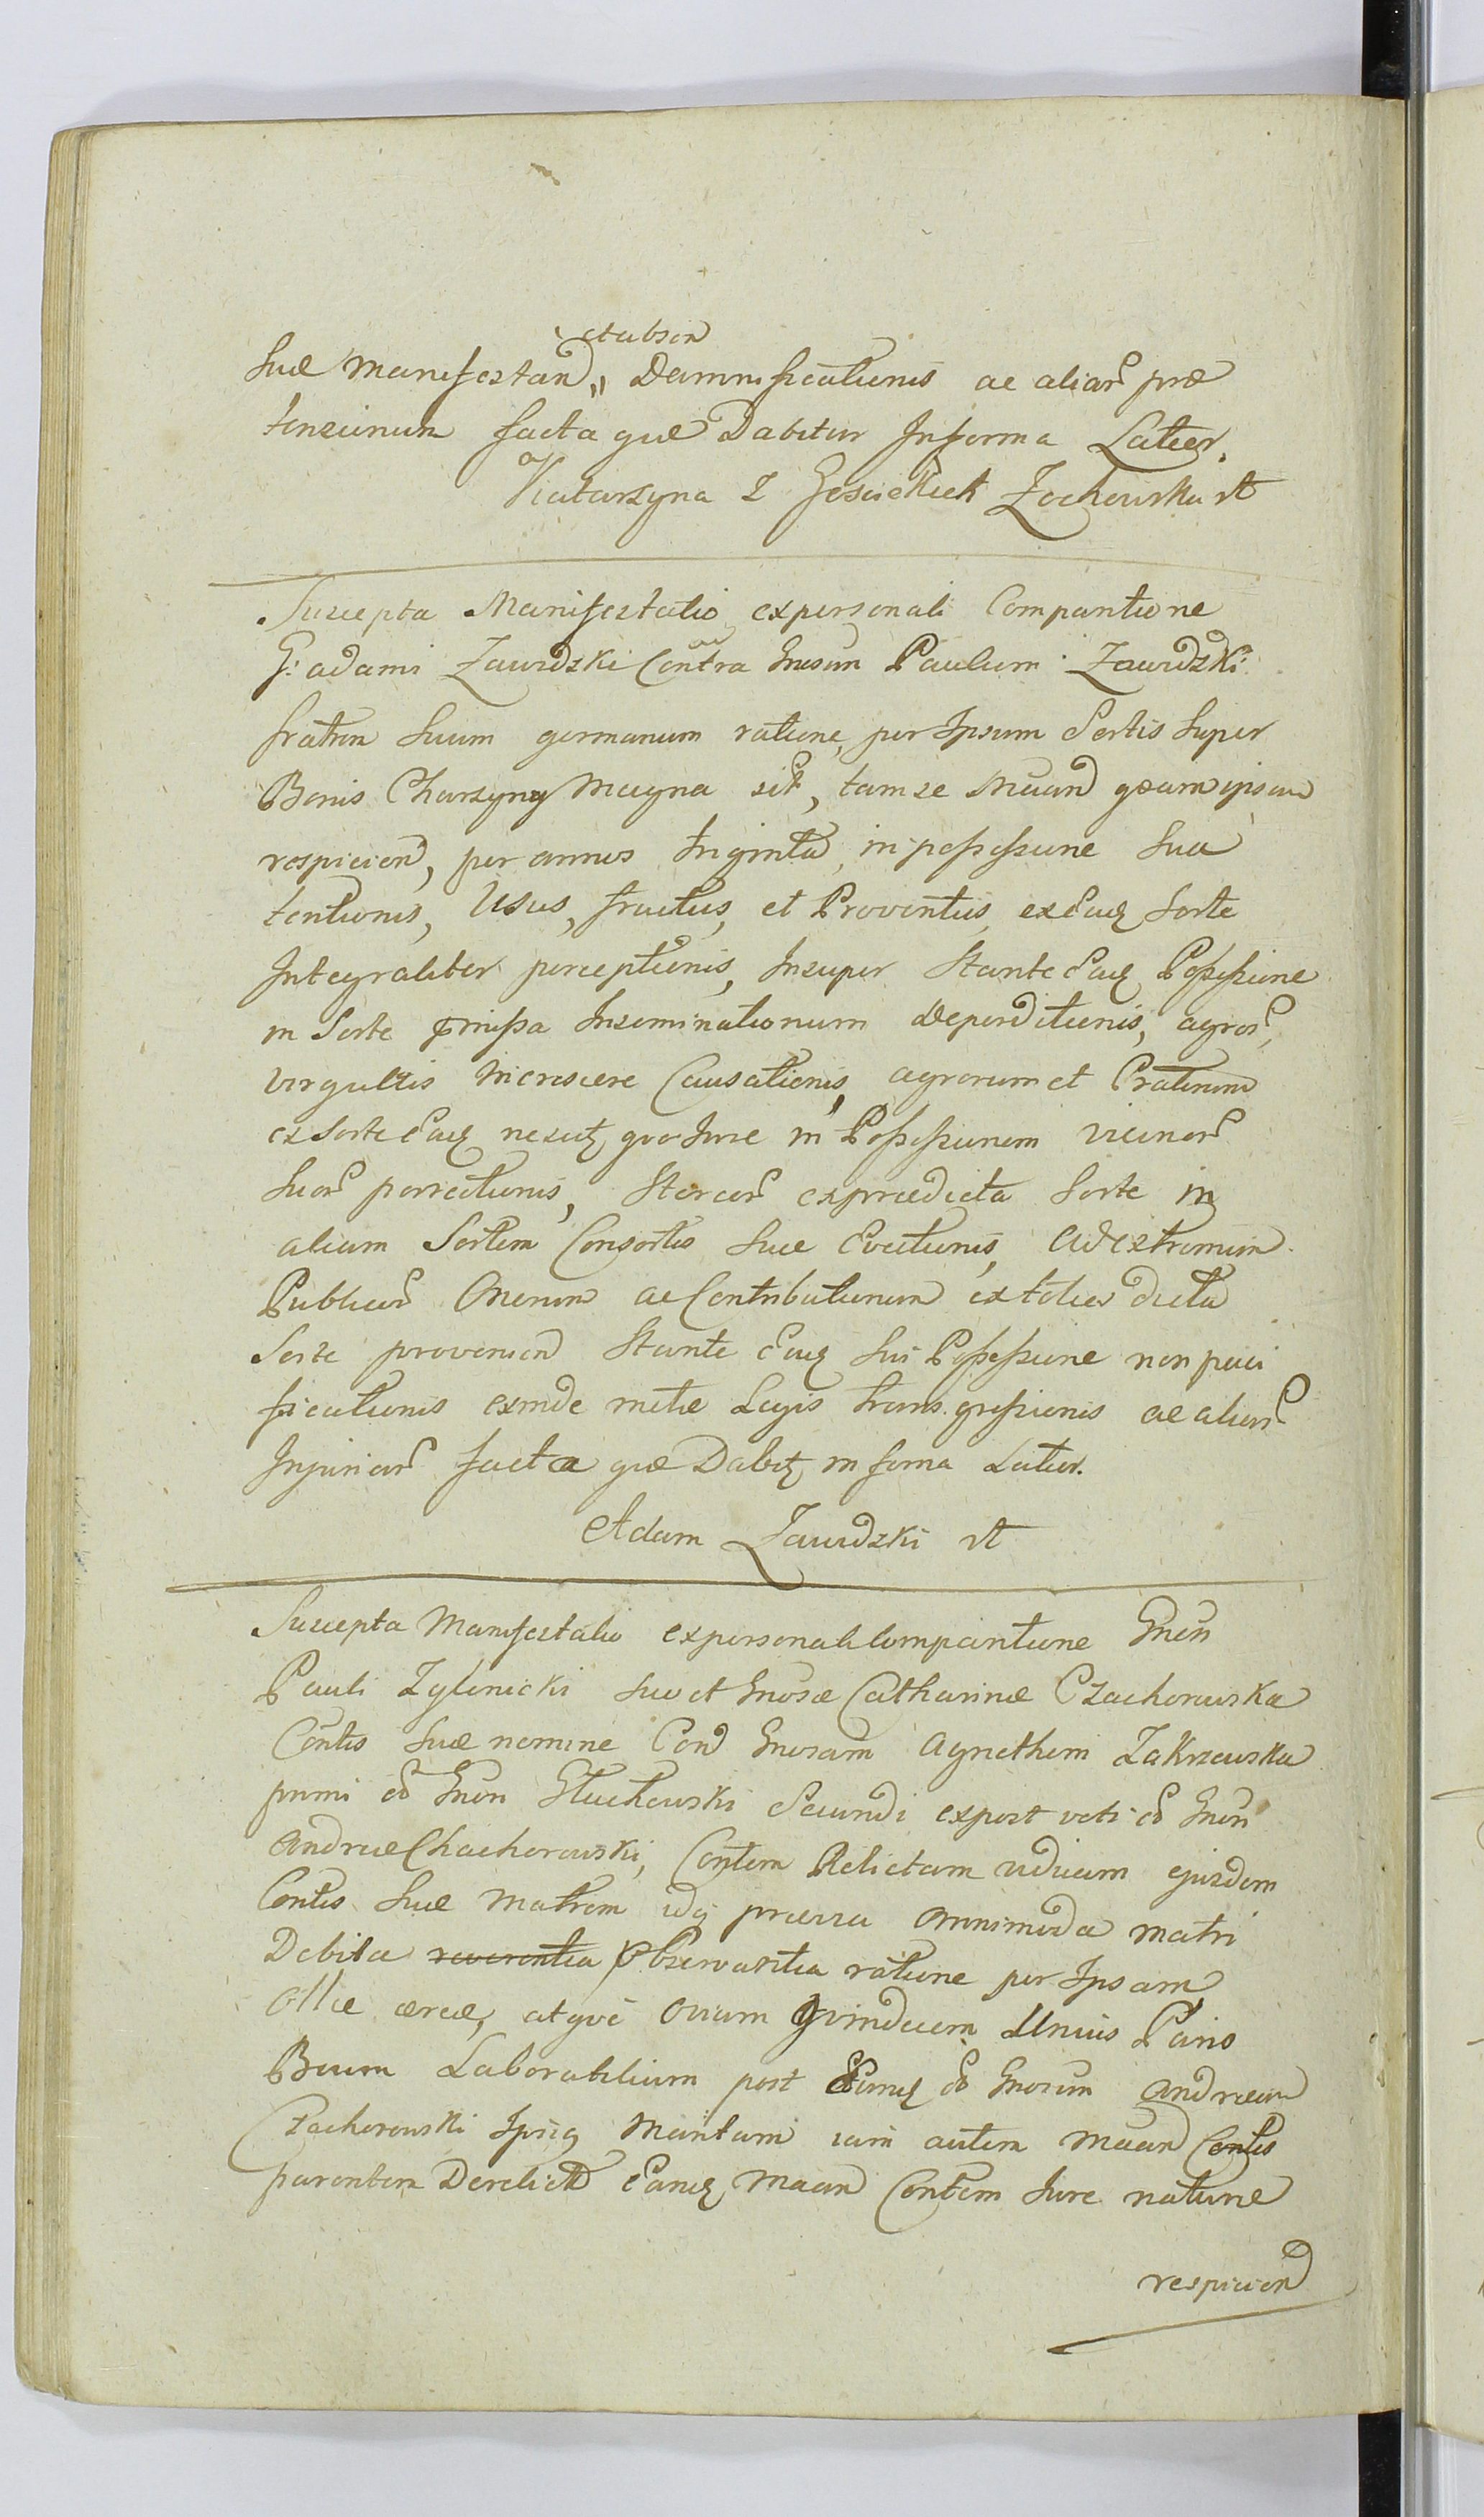 et absen
Suæ Manifestan, Damnificationis ac aliar præ
tensionum facta quæ Dabitur In forma Latior.
Katarzyna z Zochowska
Suscepta Manifestatio ex personali Comparitione
G: adami Zawidzki Contra Gnosum Paulum Zawidzki
fratrem Suum germanum ratione per Ipsum Sortis Super
Bonis Charzyny Magna sit, tam se Maand quam ipsum
respicien, per annos triginta in possessione Sua
tentionis, Usus, fructus, et Proventus ex Eadq Sorte
Integraliter perceptionis, Insuper Stante Eadq Possessione
in Sorte pmissa Inseminationum Deperditionis, agror,
Virgultis increscere Causationis, agrorum et Pratorum
ex Sorte Eadq nescitq quo Jure in Possessionem vicinor
Suor porrectionis, Stercor ex prædicta Sorte in
aliam Sortem Consortis Suæ Evectionis, Ad extremum
Publicor Onerum ac Contributionum ex toties dicta
Sorte provenien Stante Eadq Sui Possessione non paci
ficationis exinde Legis trans gressionis ac aliar
Injuriar facta quæ Dabitq in forma Latior.
Adam Zawidzki
Suscepta Manifestatio ex personali Comparitione Gnosi
Pauli Zglinicki suo et Gnosæ Catharinæ Czachorowska
Contis Suæ nomine Con Gnosam Agnethem Zakrzewska
primi Gnosi Głuchowski Secundi expost voti Gnosi
Andreæ Chachorowski, Contem Relictam viduam ejusdem
Contis Suæ Matrem idq præviа Omnimoda matri
Debita reverentia Observantia ratione per Ipsam
Ollæ æreæ, atque Ovium Quindecim Unius Paris
Boum Laborabilium post Eumq Gnosum Andream
Czachorowski Ipsiq Maritum iam autem Maan Contis
parentem Derelict Eamq Maan Contem Jure naturæ
respicien